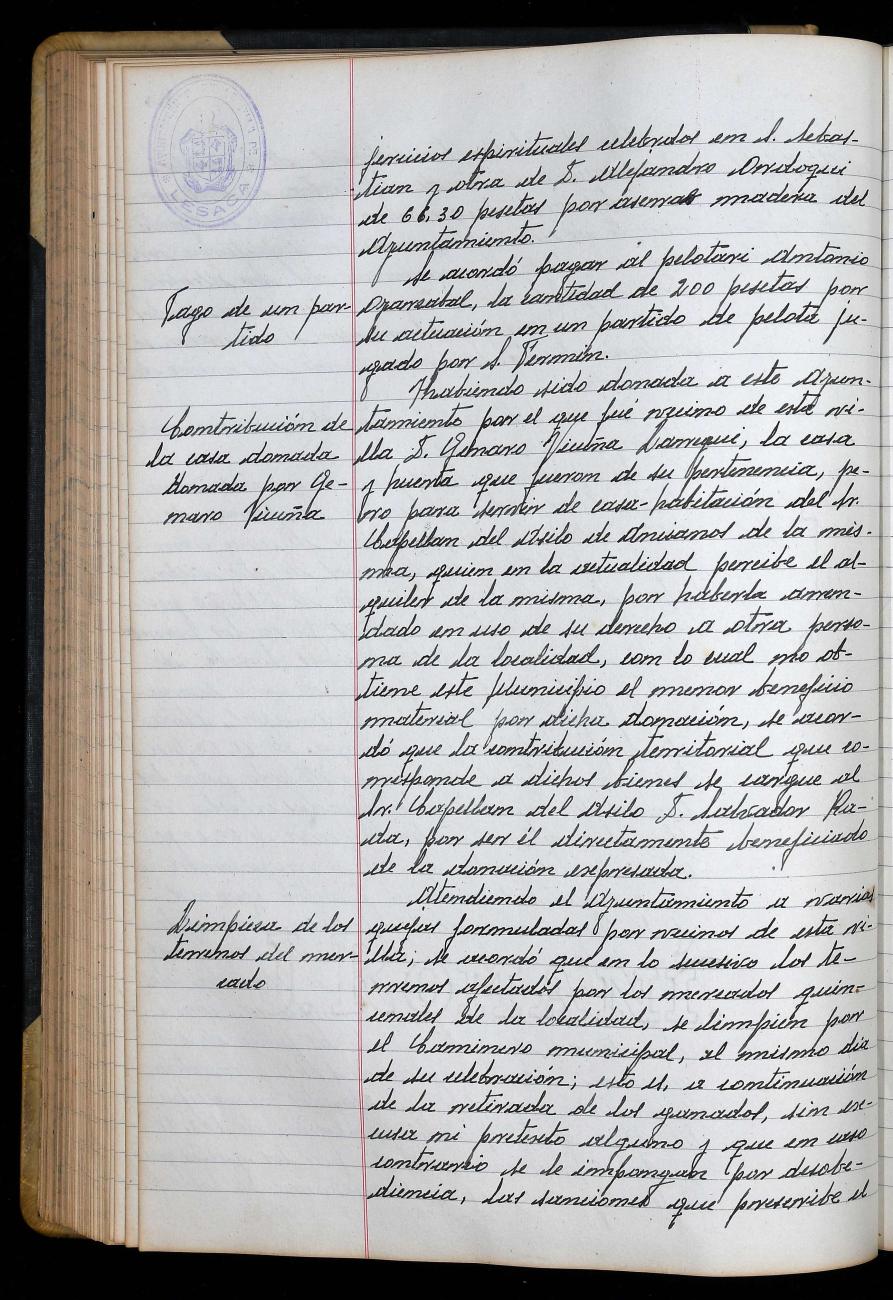 LESACA
jercicios espirituales celebrados en S. Sebas-
tian y otra de D. Alejandro Ordoqui
de 66,30 pesetas por aserrar madera del
Ayuntamiento.
Pago de un par-
tido
Se acordó pagar al pelotari Antonio
Oyarzabal, la cantidad de 200 pesetas por
su actuación en un partido de pelota ju-
gado por S. Fermin.
Contribución de
la casa donada
donada por Ge-
naro Vicuña
Habiendo sido donada a este Ayun-
tamiento por el que fué vecino de esta vi-
lla D. Genaro Vicuña Larregui, la casa
y huerta que fueron de su pertenencia, pe-
ro para servir de casa-habitación del Sr.
Capellan del Asilo de Ancianos de la mis-
ma, quien en la actualidad percibe el al-
quiler de la misma, por haberla arren-
dado en uso de su derecho a otra perso-
na de la localidad, con lo cual no ob-
tiene este Municipio el menor beneficio
material por dicha donación, se acor-
dó que la contribución territorial que co-
rresponde a dichos bienes se cargue al
Sr. Capellan del Asilo D. Salvador Ra-
da, por ser él directamente beneficiado
de la donación expresada.
Limpieza de los
terrenos del mer-
cado
Atendiendo el Ayuntamiento a varias
quejas formuladas por vecinos de esta vi-
lla; se acordó que en lo sucesivo los te-
rrenos afectados por los mercados quin-
cenales de la localidad, se limpien por
el Caminero municipal, el mismo dia
de su celebración; esto es, a continuación
de la retirada de los ganados, sin ex-
cusa ni pretexto alguno y que en caso
contrario se le impongan por desobe-
diencia, las sanciones que prescribe el